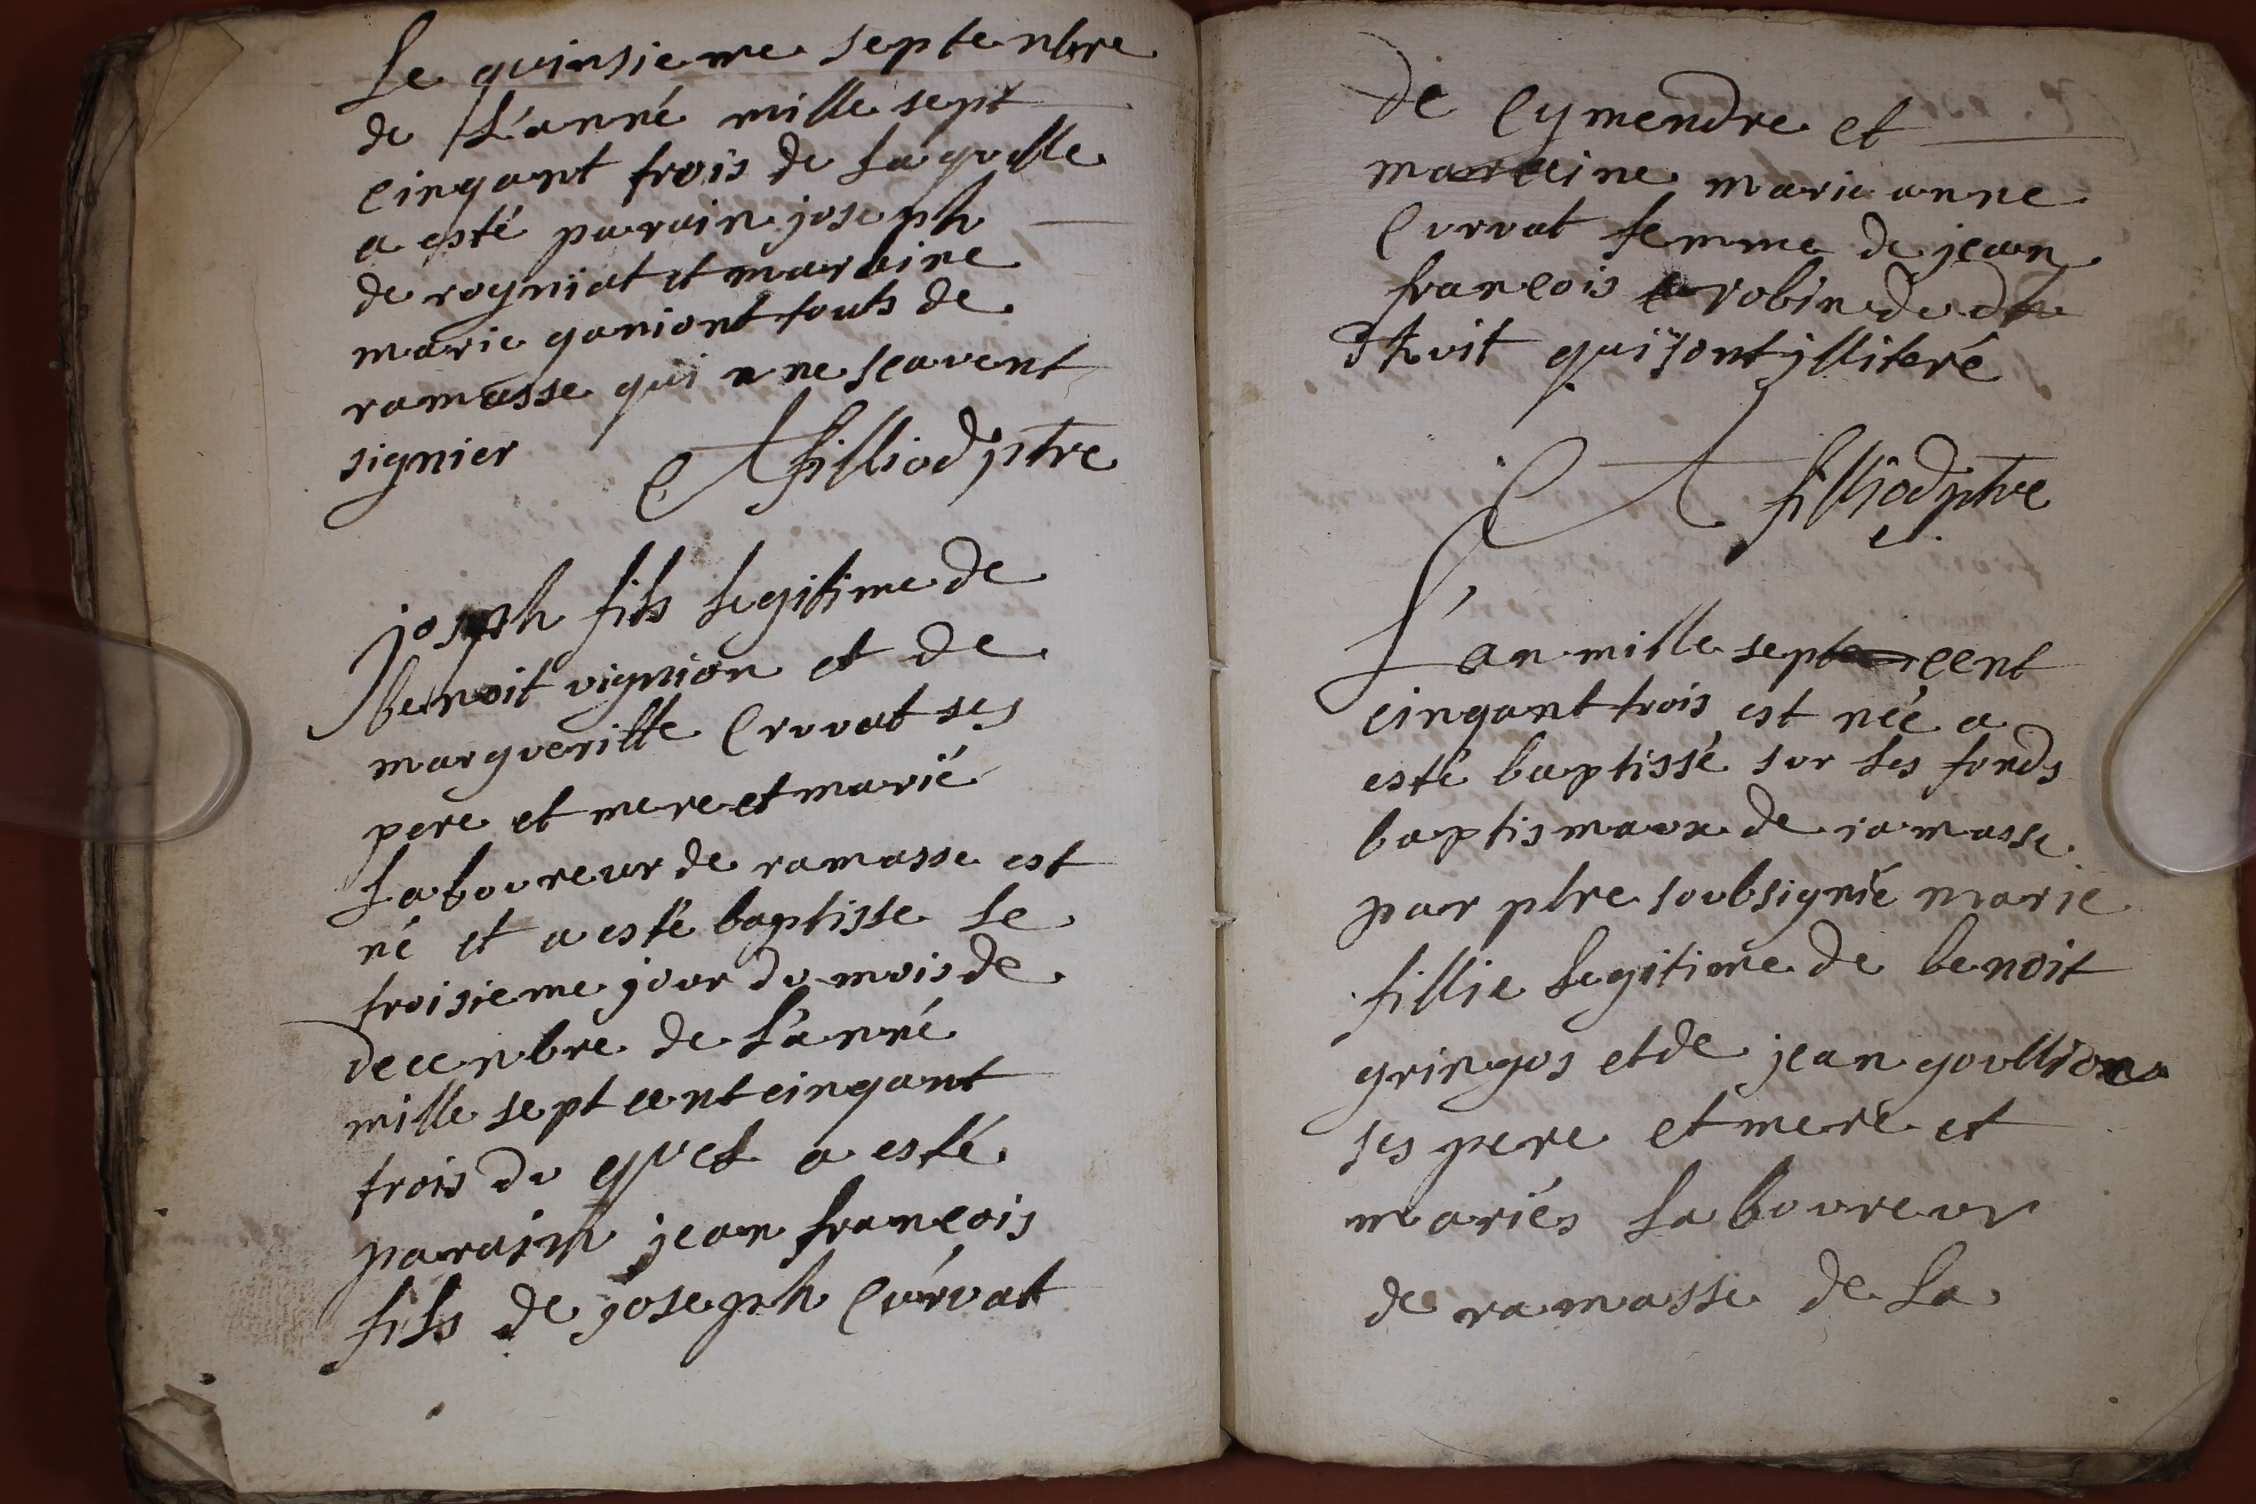 Le quinsieme septenbre
de L'anné mille sept
cinqant trois de Laquelle
a esté parain joseph
de rogniat et maraine
marie ganiont touts de
ramasse qui ne scavent
signier Afilliod ptre
joseph fils Legitime de
benoit vignion et de
margueritte Curvat ses
pere et mere et marié
Laboureur de ramasse est
né et a esté baptisse Le
troisieme jour du mois de
decenbre de L'anné
mille sept cent cinqant
trois du quel a esté
parain jean francois
fils de joseph Curvat
de Cymendre et
maraine marie anne
Curvat femme de jean
francois robin de
druit qui sont jlliteré
A filliod ptre
L'an mille sept cent
cinqant trois est née a
esté baptissé sur Les fonds
baptismaux de ramasse
par ptre soubsignié marie
fillie Legitime de benoit
gringos et de jean goullion
ses pere et mere et
mariés Laboureur
de ramasse de La